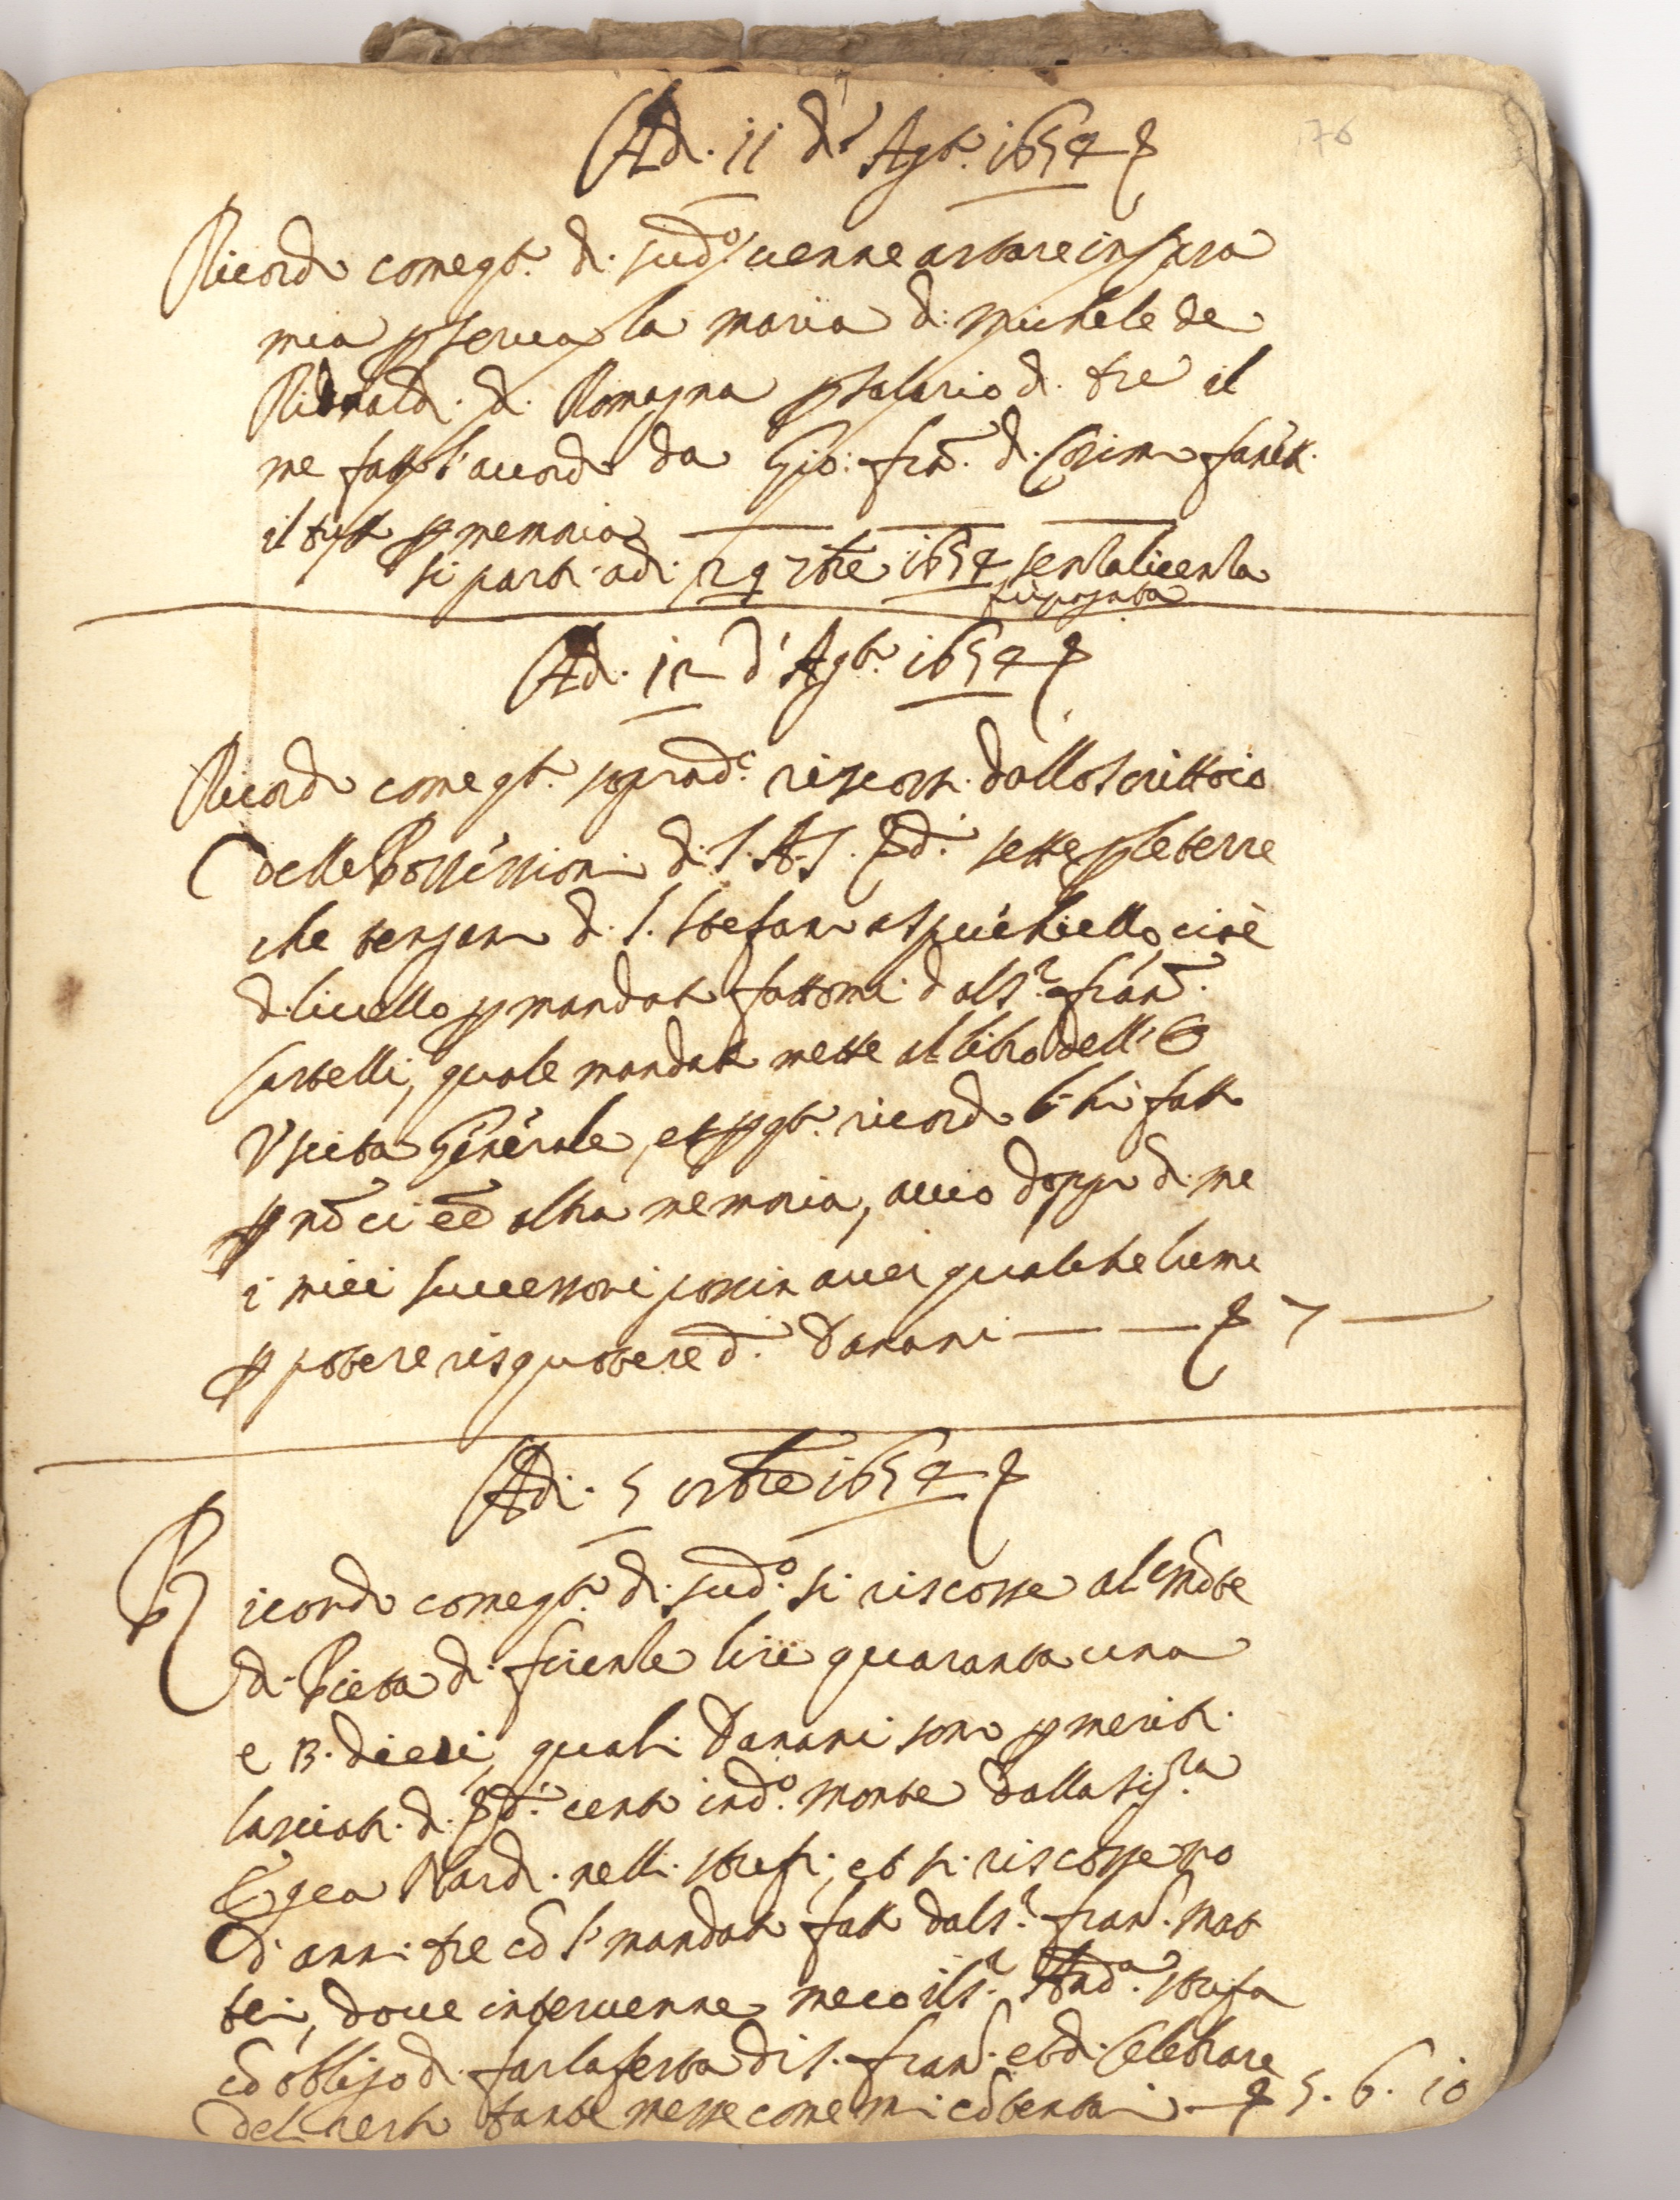 Adi. 11 d' Agto. 1654
76
Ricordo come qto. dì sudo. venne a stare in casa
mia p serva la maria di michele de
Rinaldi di Romagna p salario di tre il
me fatto l'acordo da Gio: fran. di Cosimo
il tutto p memoria
si partì adi 29 7bre 1654 senza licenza
fu pagata
Adi. 12 d' Agto. 1654
Ricordo come qto. soprado. riscossi dallo scrittoio
delle Possessioni di S. A. S. sette p le terre
che tengano di S. Stefano a cioè
di livello p mandato fattomi dal Sr. fran.
quale mandato mette al libro dell' E
Uscita Generale, et p qto. ricordo l'ho fatto
p nō ci ēē altra memoria, accio doppo di me
i miei successori possin aver qualche lume
p potere risquotere d. Danari — — 7 —
Adi. 5 8tbre 1654
Ricordo come qto. dì sudo. si riscosse al mōte
di Pieta di firenze lire quaranta una
e B. dieci, quali Danari sono p meriti
lasciati di cento in do. monte dalla Sig.ra
Egea Nardi nelli strufi, et si riscossero
d' anni tre cō l' mandato fatto dal Sr. fran. Mat
tei, dove intervenne meco il Sr. And.a strufa
cō obligo di far la festa di S. fran. et di Celebrare
del resto tante messe come mi cōtentai — 5. 6. 10